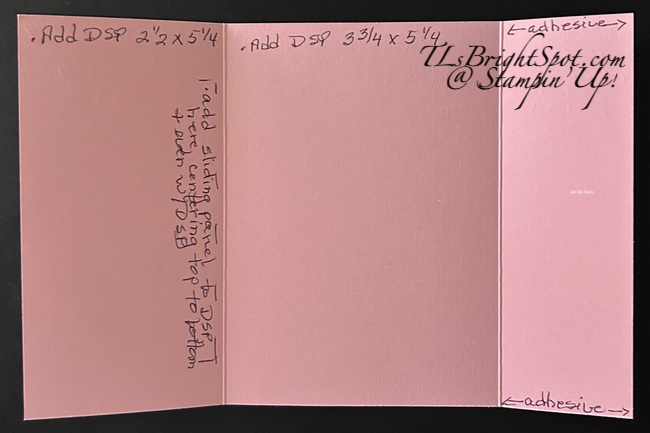 . Add DSP 2 1/2 x 5 1/4
. Add DSP 3 3/4 x 5 1/4
←adhesive→
TLsBrightSpot.com
@ Stampin' Up!
add sliding panel to DSP
here, centering top to bottom
+ even w/DSP
←adhesive→